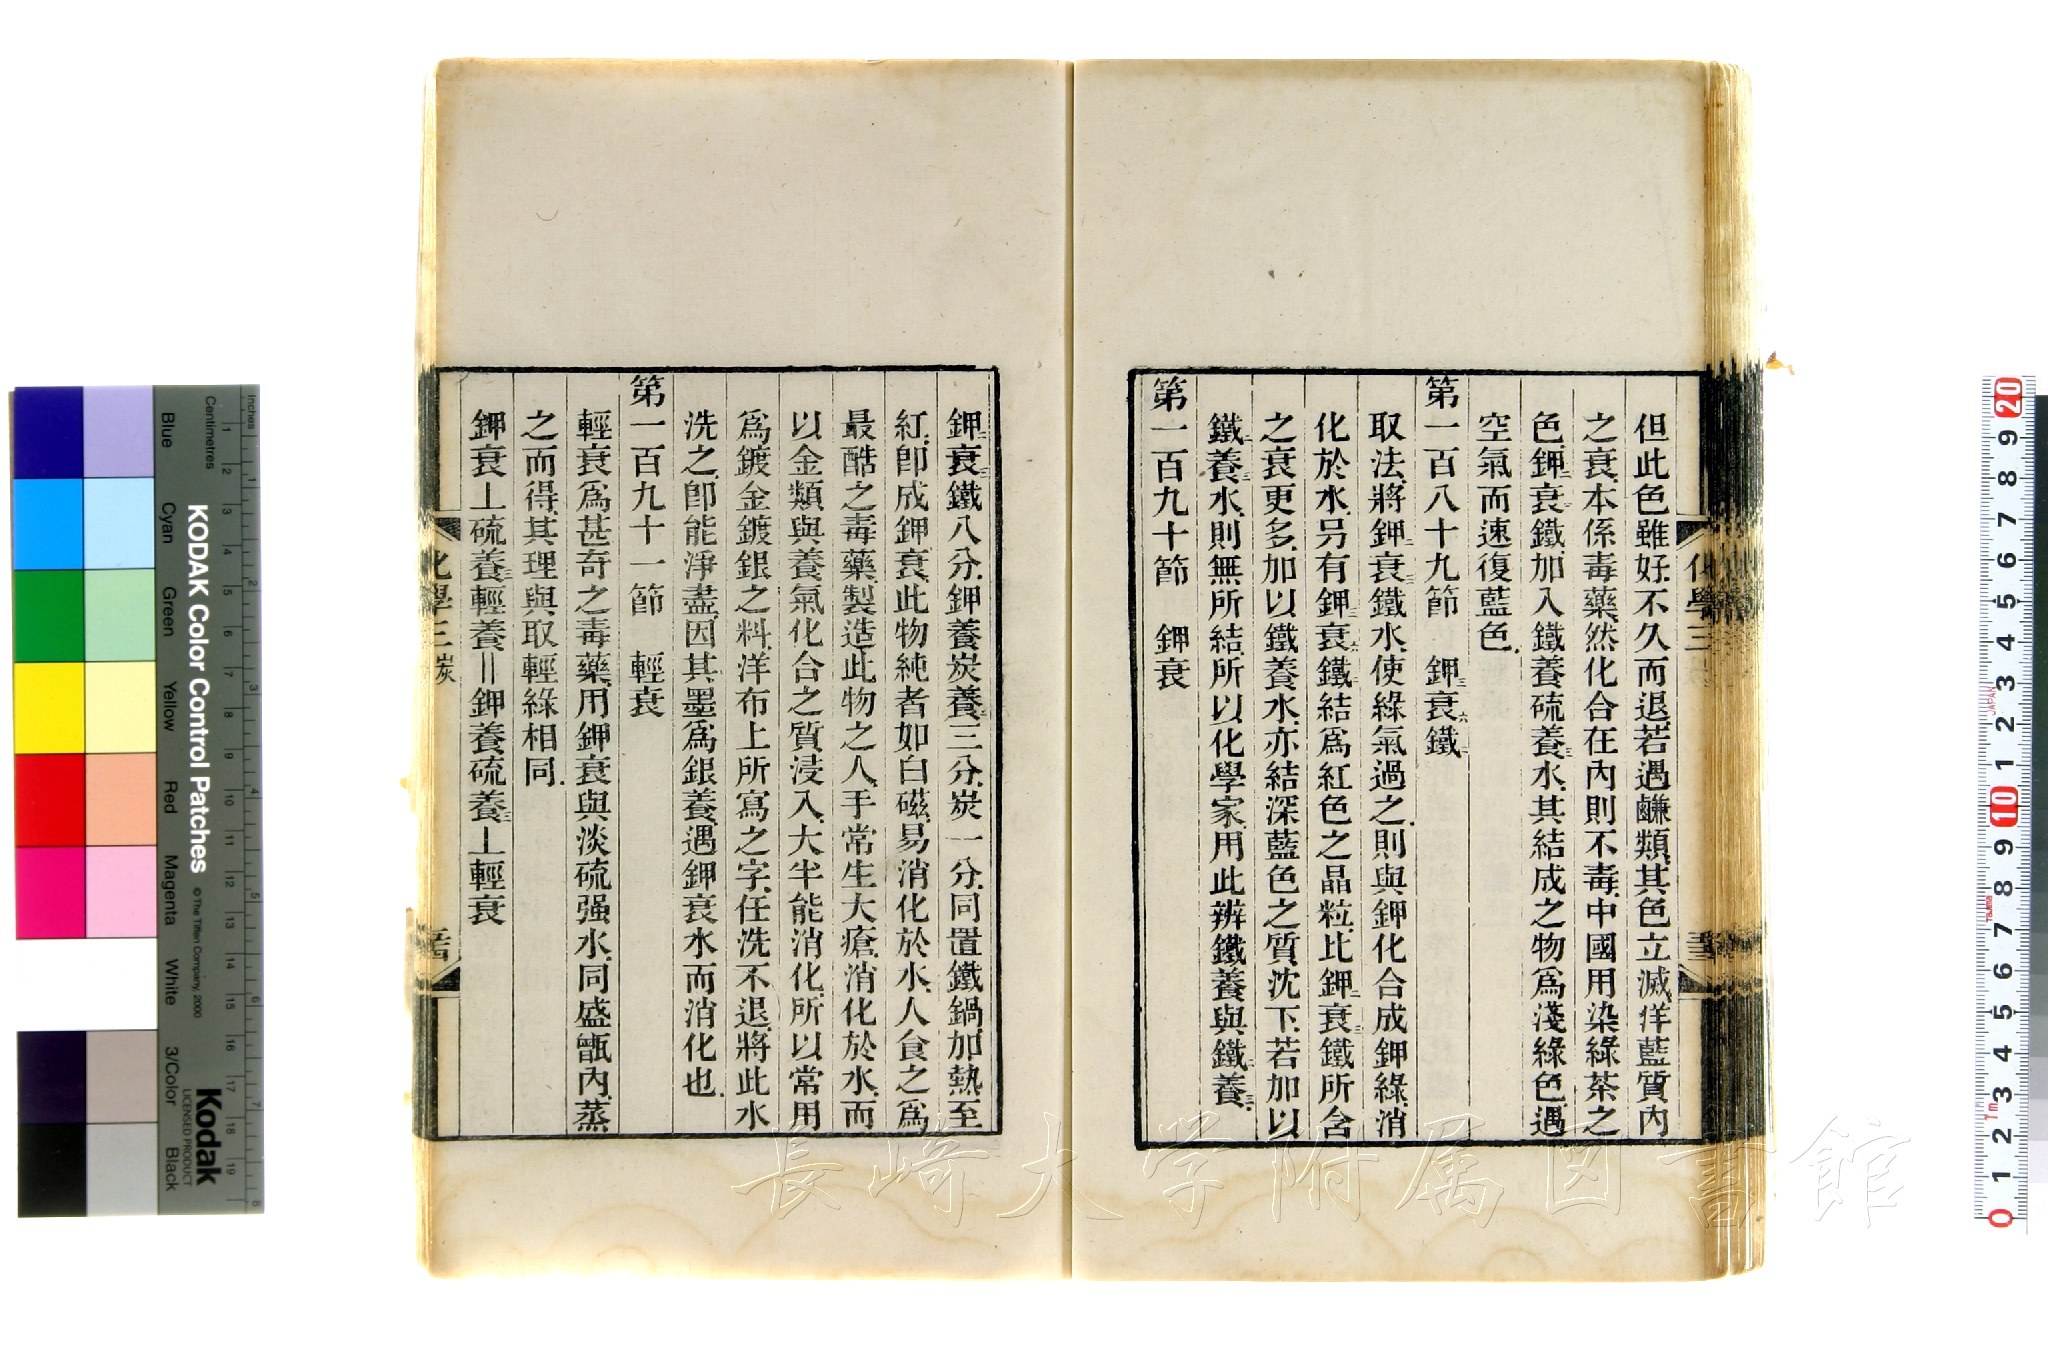 但此色雖好.不久而退.若遇鹻類.其色立滅.洋藍質內
之衰.本係毒藥.然化合在內則不毒.中國用染綠茶之
色.鉀二衰三鐵加入鐵養硫養三水.其結成之物爲淺綠色.遇
空氣而速復藍色.
第一百八十九節　鉀三衰六鐵二
取法.將鉀二衰三鐵水.使綠氣過之.則與鉀化合成鉀綠.消
化於水.另有鉀三衰六鐵二結爲紅色之晶粒.比鉀二衰三鐵所含
之衰更多.加以鐵養水.亦結深藍色之質沈下.若加以
鐵二養三水.則無所結.所以化學家用此辨鐵養與鐵二養三.
第一百九十節　鉀衰
鉀二衰三鐵八分.鉀養炭養二三分.炭一分.同置鐵鍋加熱至
紅.卽成鉀衰.此物純者如白磁.易消化於水.人食之爲
最酷之毒藥.製造此物之人.手常生大瘡.消化於水.而
以金類與養氣化合之質浸入.大半能消化.所以常用
爲鍍金鍍銀之料.洋布上所寫之字.任洗不退.將此水
洗之.卽能淨盡.因其墨爲銀養.遇鉀衰水而消化也.
第一百九十一節　輕衰
輕衰爲甚奇之毒藥.用鉀衰與淡硫强水.同盛甑內.蒸
之而得.其理與取輕綠相同.
鉀衰⊥硫養三輕養＝鉀養硫養三⊥輕衰
化學三
化學三 炭
長崎大学附属図書館
KODAK Color Control Patches
© The Tiffen Company, 2000
Kodak
LICENSED PRODUCT
Inches
Centimetres
Blue
Cyan
Green
Yellow
Red
Magenta
White
3/Color
Black
JAPAN